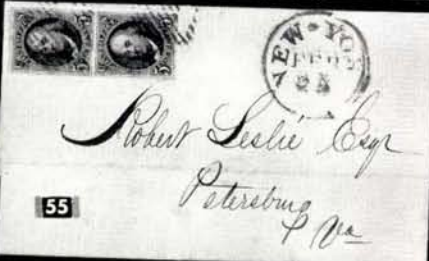 5 5
NEW-YOR
FEB
25
Robert Leslie Esqr
Petersburg
Va
55